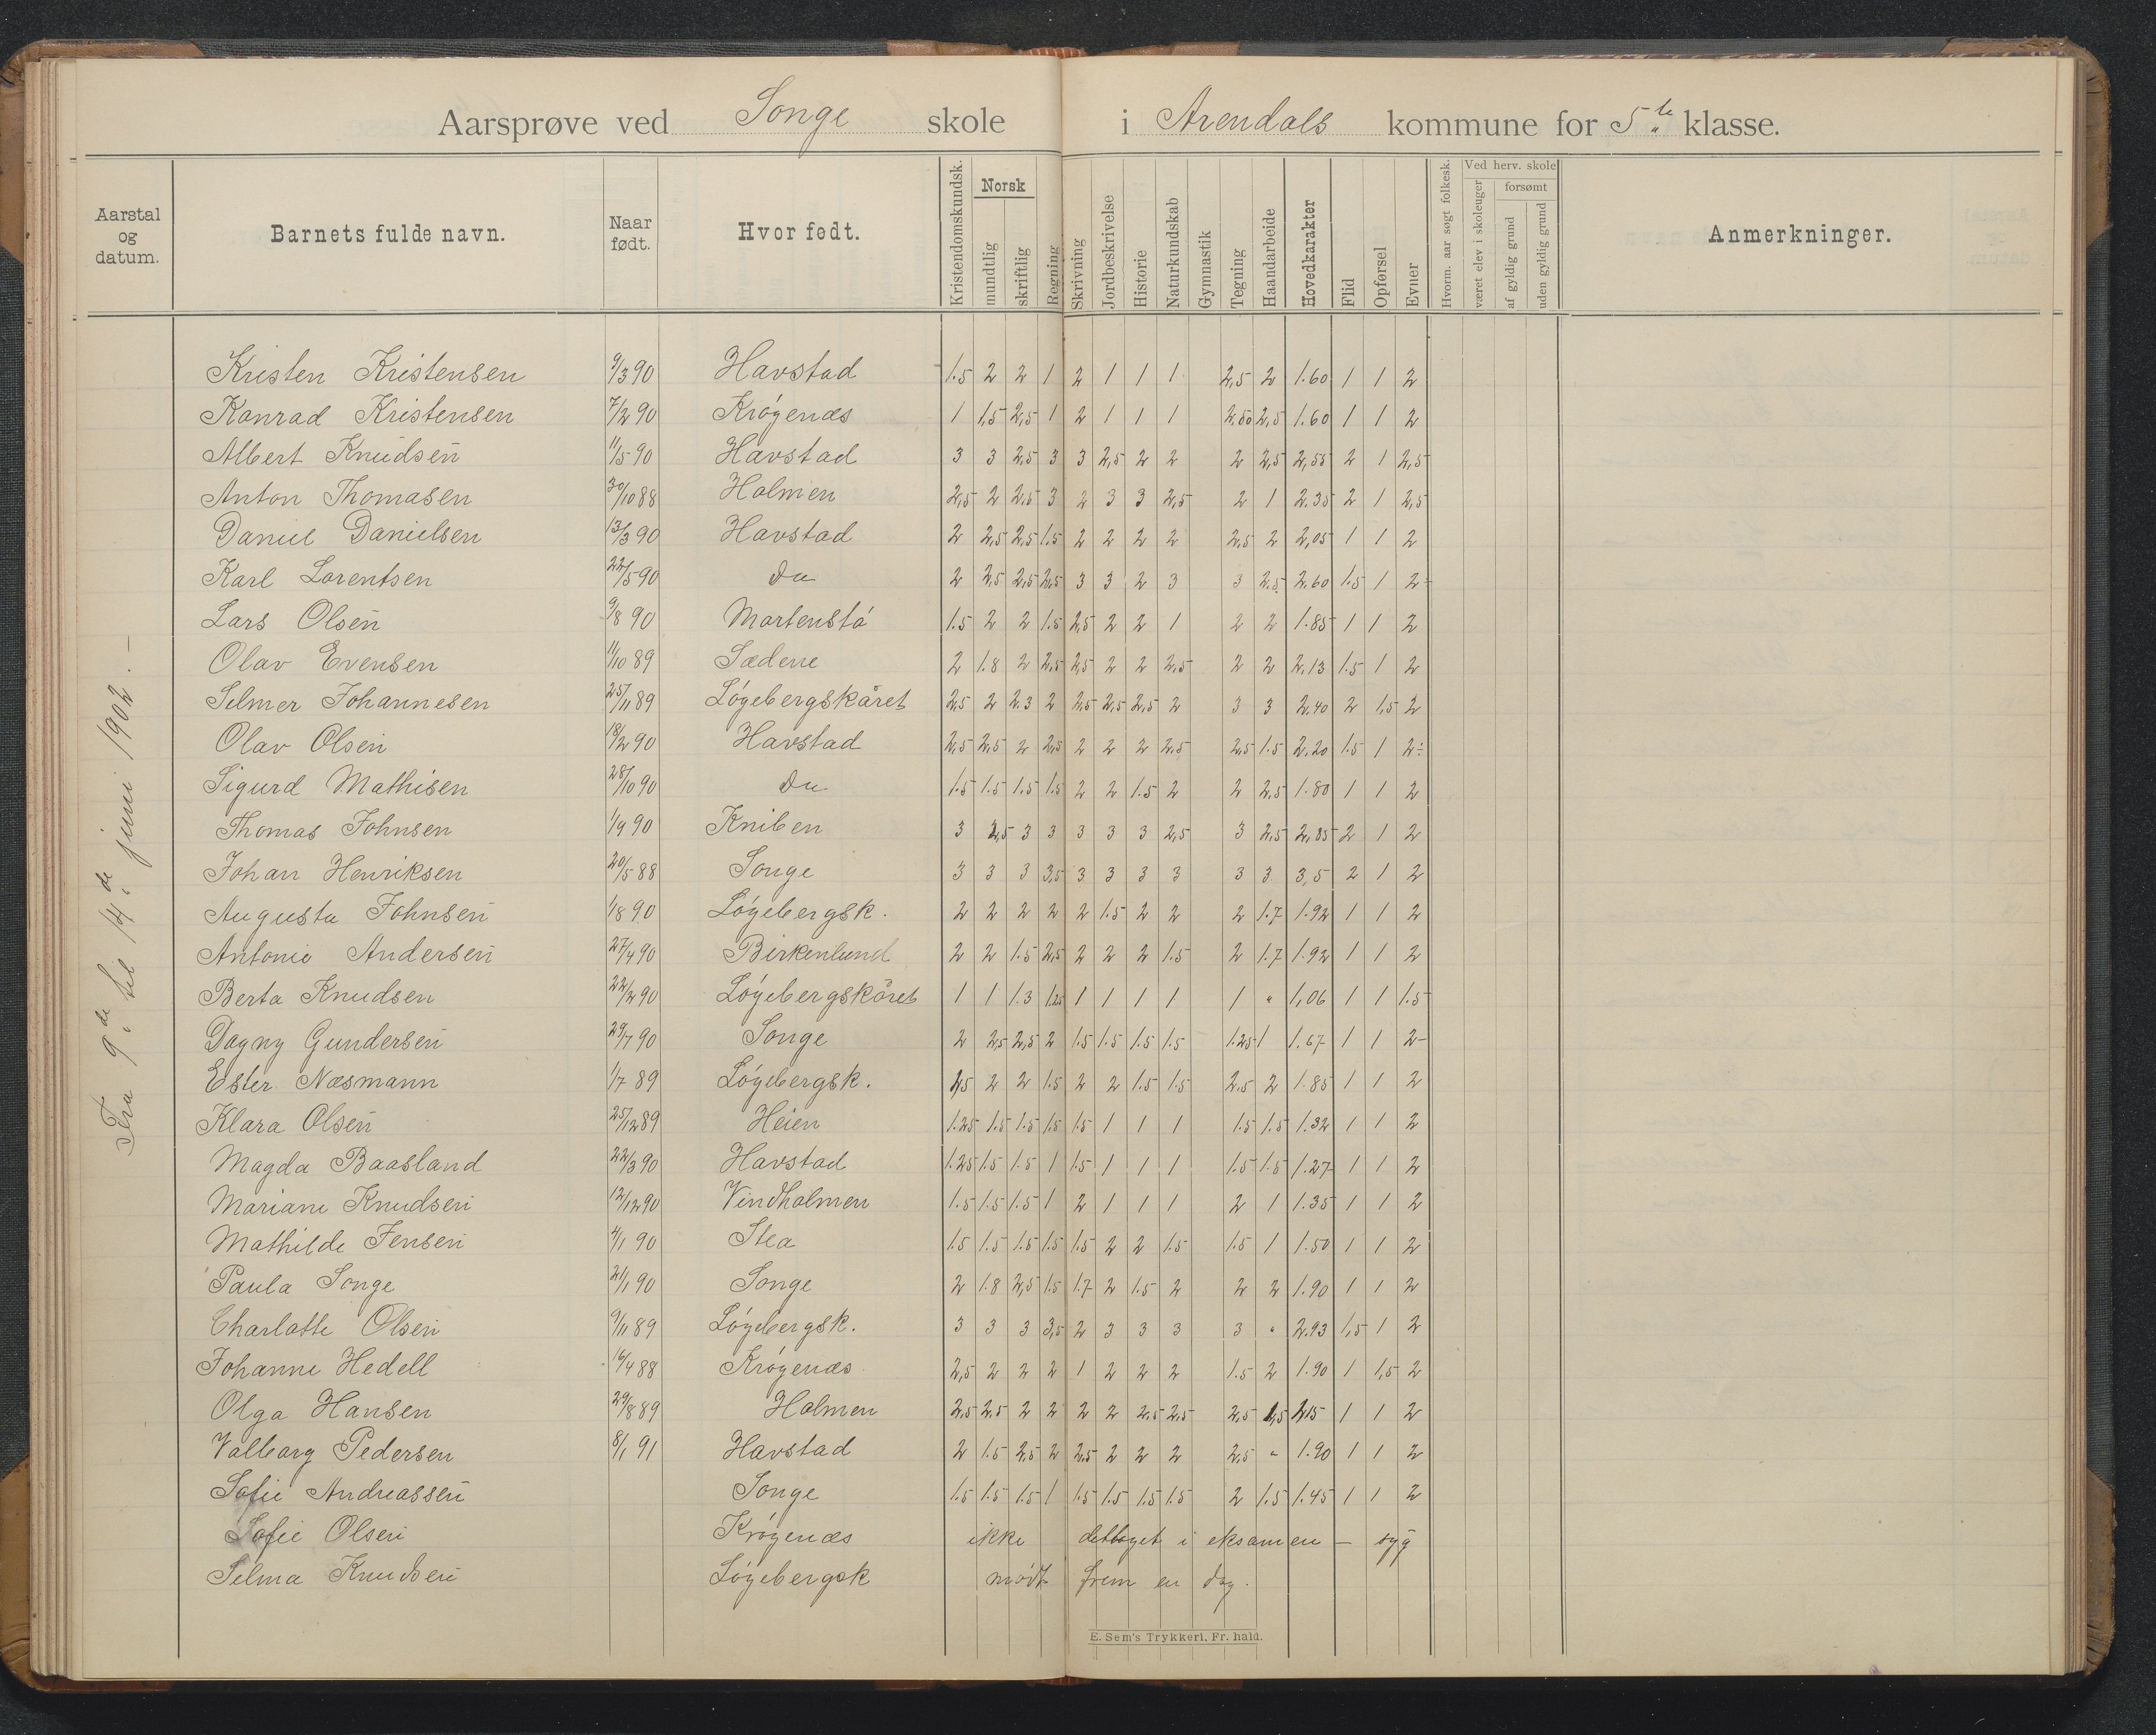 Aarsprøve ved Songe skole i Arendals kommune for 5te klasse.
Aarstal og datum. Barnets fulde navn. Naar født. Hvor født. Kristendomskundsk. Norsk mundtlig skriftlig Regning Skrivning Jordbeskrivelse Historie Naturkundskab Gymnastik Tegning Haandarbeide Hovedkarakter Flid Opførsel Evner Hvorm. aar søgt folkesk. Ved herv. skole været elev i skoleuger forsømt af gyldig grund uden gyldig grund Anmerkninger.
Fra 9de til 14de juni 1902.
Kristen Kristensen 9/3 90 Havstad 1.5 2 2 1 2 1 1 1 2,5 2 1.60 1 1 2
Konrad Kristensen 7/2 90 Krøgenæs 1 1,5 2,5 1 2 1 1 1 2.50 2,5 1.60 1 1 2
Albert Knudsen 11/5 90 Havstad 3 3 2,5 3 3 2,5 2 2 2 2,5 2,55 2 1 2,5
Anton Thomasen 30/10 88 Holmen 2,5 2 2,5 3 2 3 3 2,5 2 1 2.35 2 1 2,5
Daniel Danielsen 13/3 90 Havstad 2 2,5 2,5 1.5 2 2 2 2 2,5 2 2,05 1 1 2
Karl Lorentsen 22/5 90 Do 2 2,5 2,5 2,5 3 3 2 3 3 2.5 2.60 1.5 1 2-
Lars Olsen 9/8 90 Mortenstø 1.5 2 2 1.5 2,5 2 2 1 2 2 1.85 1 1 2
Olav Evensen 11/10 89 Sædene 2 1.8 2 2,5 2,5 2 2 2,5 2 2 2,13 1.5 1 2
Selmer Johannesen 25/11 89 Løgebergskåret 2,5 2 2.3 2 2,5 2,5 2,5 2 3 3 2.40 2 1,5 2
Olav Olsen 18/2 90 Havstad 2,5 2,5 2 2,5 2 2 2 2,5 2,5 1.5 2.20 1.5 1 2÷
Sigurd Mathisen 28/10 90 Do 1.5 1.5 1.5 1.5 2 2 1.5 2 2 2,5 1.80 1 1 2
Thomas Johnsen 1/9 90 Kniben 3 2,5 3 3 3 3 3 2,5 3 2,5 2,85 2 1 2
Johan Henriksen 20/5 88 Songe 3 3 3 3,5 3 3 3 3 3 3 3,5 2 1 2
Augusta Johnsen 1/8 90 Løgebergsk. 2 2 2 2 2 1.5 2 2 2 1.7 1.92 1 1 2
Antonie Andersen 27/4 90 Birkenlund 2 2 1.5 2,5 2 2 2 1.5 2 1.7 1.92 1 1 2
Berta Knudsen 22/2 90 Løgebergskåret 1 1 1.3 1.25 1 1 1 1 1 " 1,06 1 1 1.5
Dagny Gundersen 29/7 90 Songe 2 2,5 2,5 2 1.5 1.5 1.5 1.5 1.25 1 1.67 1 1 2-
Ester Næsmann 1/7 89 Løgebergsk. 1,5 2 2 1.5 2 2 1.5 1.5 2.5 2 1.85 1 1 2
Klara Olsen 25/12 89 Heien 1.25 1.5 1.5 1.5 1.5 1 1 1 1.5 1.5 1.32 1 1 2
Magda Baasland 22/3 90 Havstad 1.25 1.5 1.5 1 1.5 1 1 1 1.5 1.5 1.27 1 1 2
Mariane Knudsen 12/12 90 Vindholmen 1.5 1.5 1.5 1 2 1 1 1 2 1 1.35 1 1 2
Mathilde Jensen 4/1 90 Stea 1.5 1.5 1.5 1.5 1.5 2 2 1.5 1.5 1 1.50 1 1 2
Paula Songe 21/1 90 Songe 2 1.8 2,5 1.5 1.7 2 1.5 2 2 2 1.90 1 1 2
Charlotte Olsen 9/11 89 Løgebergsk. 3 3 3 3,5 2 3 3 3 3 " 2.93 1,5 1 2
Johanne Hedell 16/4 88 Krøgenæs 2,5 2 2 2 1 2 2 2 1.5 2 1.90 1 1,5 2
Olga Hansen 29/8 89 Holmen 2.5 2.5 2 2 2 2 2.5 2.5 2,5 1,5 2.15 1 1 2
Valborg Pedersen 8/1 91 Havstad 2 1.5 2,5 2 2.5 2 2 2 2,5 " 1.90 1 1 2
Sofie Andreassen Songe 1.5 1.5 1.5 1 1.5 1.5 1.5 1.5 2 1.5 1.45 1 1 2
Sofie Olsen Krøgenæs ikke deltaget i eksamen — syg
Selma Knudsen Løgebergsk mødt frem en dag.
E. Sem's Trykkeri, Fr. hald.